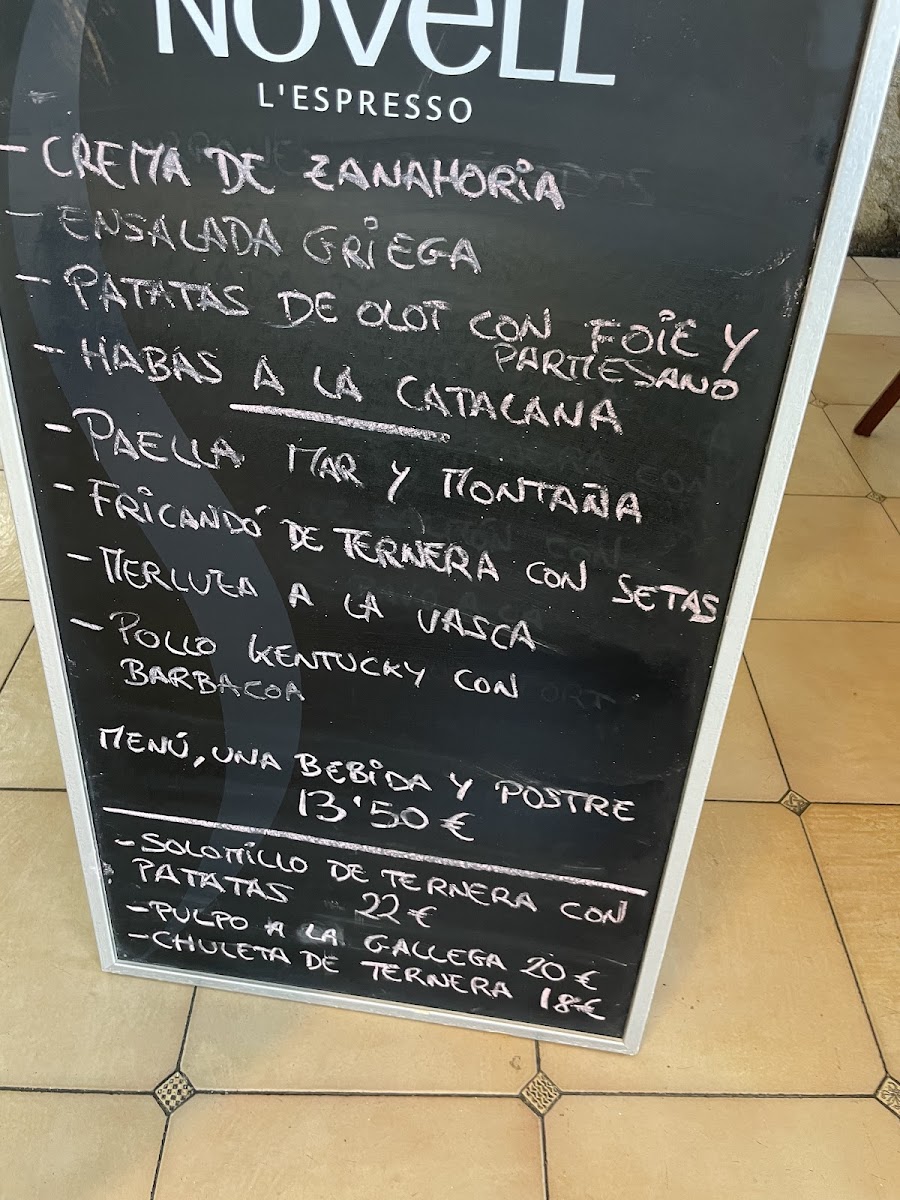 NOVELL
L'ESPRESSO
- CREMA DE ZANAHORIA
- ENSALADA GRIEGA
- PATATAS DE OLOT CON FOIE Y
PARMESANO
- HABAS A LA CATALANA
- PAELLA MAR Y MONTAÑA
- FRICANDÓ DE TERNERA CON SETAS
- MERLUZA A LA VASCA
- POLLO KENTUCKY CON
BARBACOA
MENÚ, UNA BEBIDA Y POSTRE
13'50 €
- SOLOMILLO DE TERNERA CON
PATATAS 22 €
- PULPO A LA GALLEGA 20 €
- CHULETA DE TERNERA 18 €